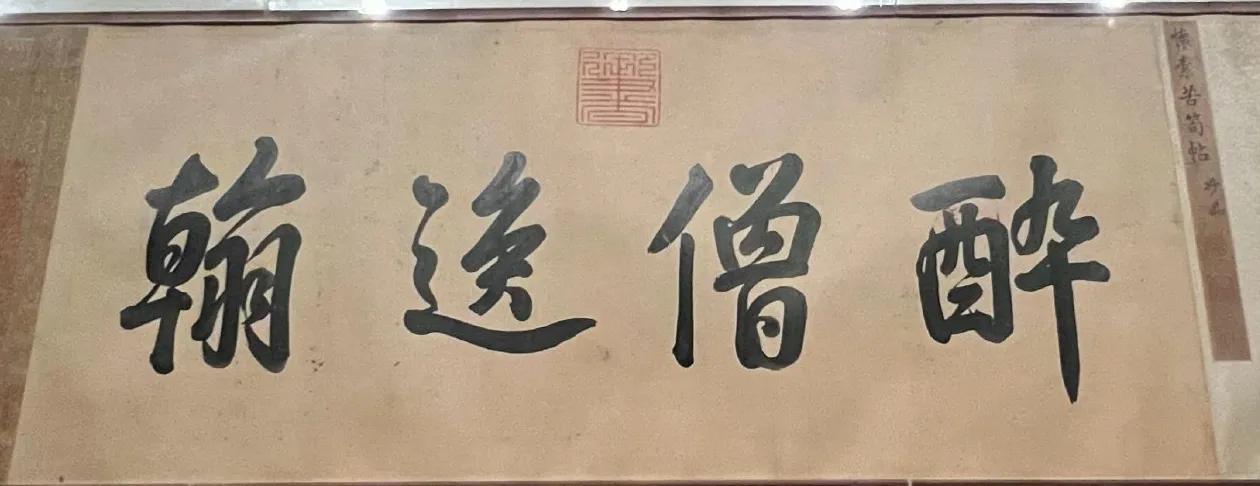 懷素苦筍帖
醉僧逸翰
御書